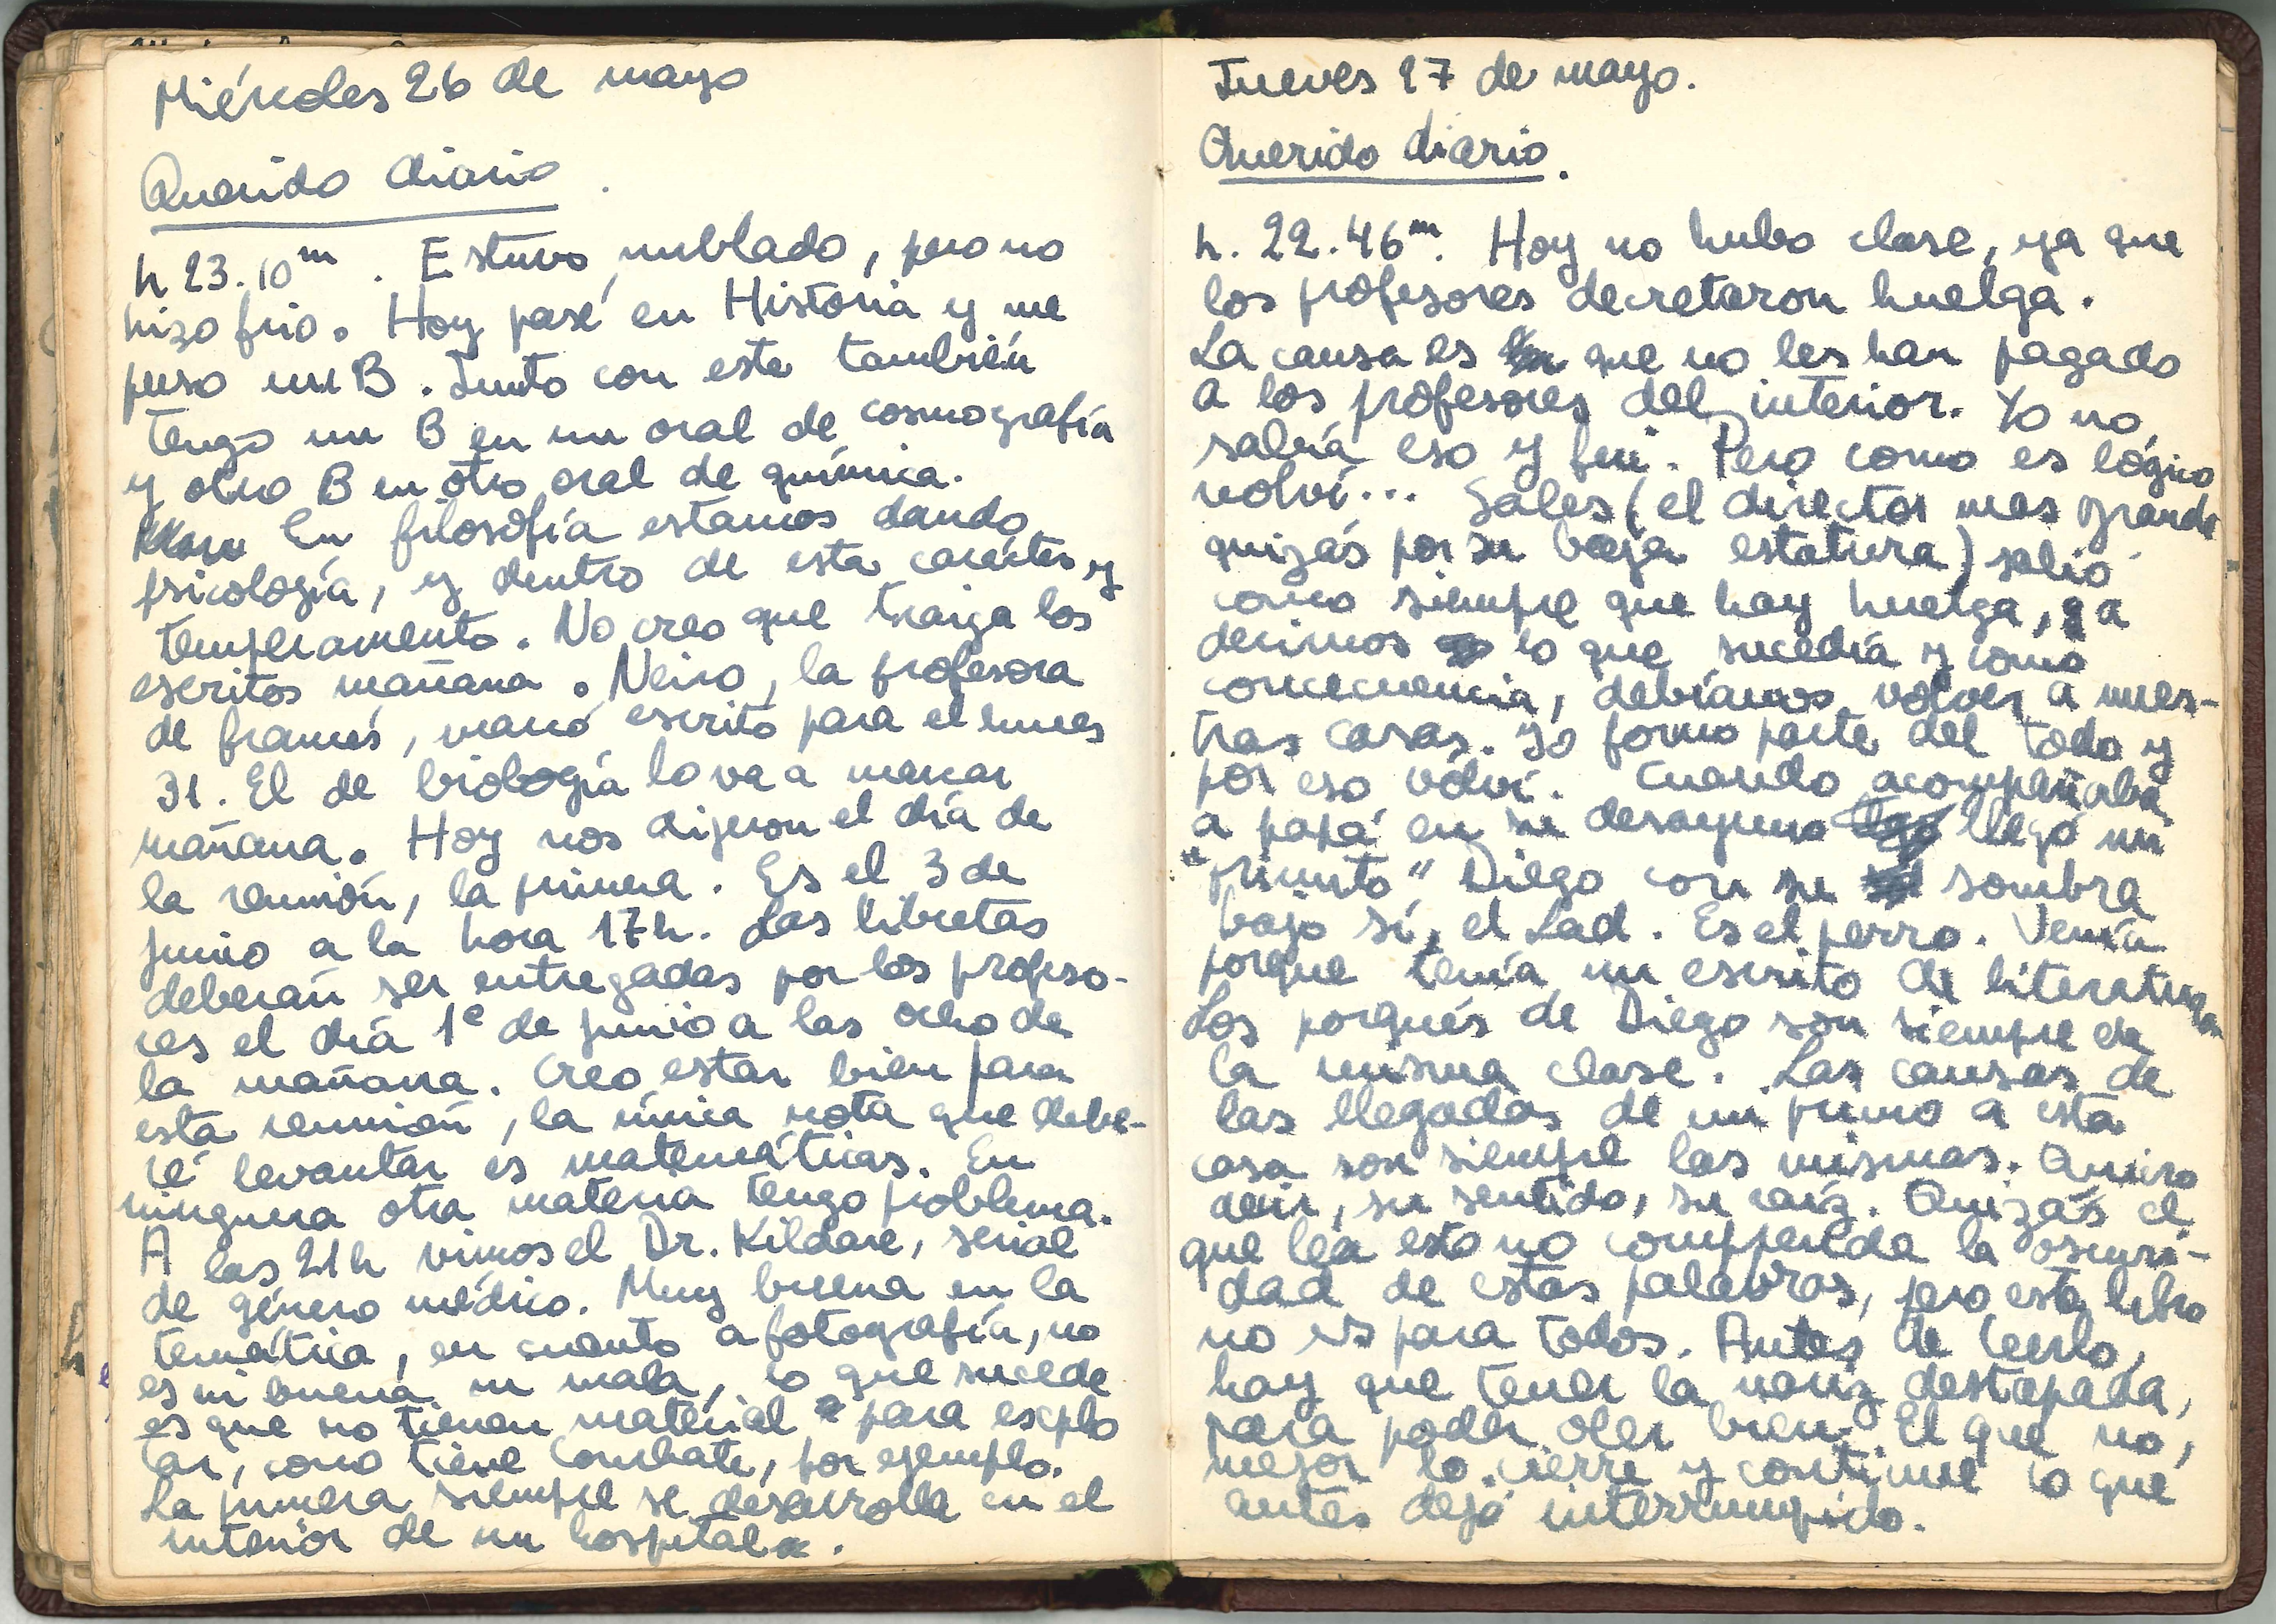 Miércoles 26 de mayo
Querido diario.
h 23.10m. Estuvo nublado, pero no
hizo frio. Hoy pasé en Historia y me
puso un B. Junto con este también
tengo un B en un oral de cosmografía
y otro B en otro oral de química.
En filosofía estamos dando
psicología, y dentro de esta carácter y
temperamento. No creo que traiga los
escritos mañana. Neiro, la profesora
de francés, marcó escrito para el lunes
31. El de biología lo va a marcar
mañana. Hoy nos dijeron el día de
la reunión, la primera. Es el 3 de
junio a la hora 17h. Las libretas
deberán ser entregadas por los profeso-
res el día 1º de junio a las ocho de
la mañana. Creo estar bien para
esta reunión, la única nota que debe-
ré levantar es matemáticas. En
ninguna otra materia tengo problema.
A las 21h vimos el Dr. Kildare, serial
de género médico. Muy buena en la
temática, en cuanto a fotografía, no
es ni buena ni mala, lo que sucede
es que no tienen material para explo
tar, como tiene Combate, por ejemplo.
La primera siempre se desarrolla en el
interior de un hospital.
Jueves 27 de mayo.
Querido diario.
h. 22.46m. Hoy no hubo clase, ya que
los profesores decretaron huelga.
La causa es que no les han pagado
a los profesores del interior. Yo no
sabía eso y fui. Pero como es lógico
volví... Sales (el director mas grande
quizás por su baja estatura) salió
como siempre que hay huelga, a
decirnos lo que sucedía y como
concecuencia, debíamos volver a nues-
tras casas. Yo formo parte del todo y
por eso volví. Cuando acompañaba
a papá en su desayuno llegó mi
"primito" Diego con su sombra
bajo sí, el Lad. Es el perro. Venía
porque tenía un escrito de literatura
Los porqués de Diego son siempre de
la misma clase. Las causas de
las llegadas de mi primo a esta
casa son siempre las mismas. Quiero
decir, su sentido, su raíz. Quizás el
que lea esto no comprenda la oscuri-
dad de estas palabras, pero este libro
no es para todos. Antes de leerlo,
hay que tener la nariz destapada,
para poder oler bien. El que no,
mejor lo cierre y continue lo que
antes dejó interrumpido.